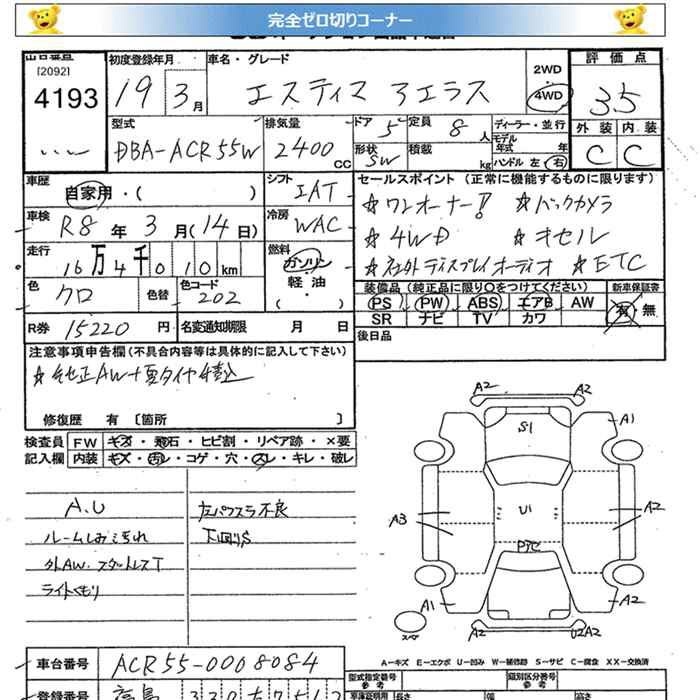 完全ゼロ切りコーナー
出品番号
[2092]
4193
初度登録年月
19 3月
車名・グレード
エスティマ アエラス
2WD
4WD
評価点
3.5
型式
DBA-ACR55W
排気量
2400 CC
ドア 5
形状 SW
定員 8 人
積載 kg
ディーラー・並行
モデル年式 年
ハンドル 左 右
外装 内装
C C
車歴
自家用・( )
シフト
IAT
セールスポイント (正常に機能するものに限ります)
☆ワンオーナー!! ☆バックカメラ
☆4WD ☆オセル
☆社外ディスプレイオーディオ ☆ETC
車検
R8年 3月(14日)
冷房
WAC
走行
16万4千010km
燃料
ガソリン
軽油
( ・ )
色
クロ
色替
色コード
202
装備品 (純正品に限り○をつけてください)
PS PW ABS エアB AW
SR ナビ TV カワ
新車保証書
有・無
R券 15220円
名変通知期限 月 日
後日品
注意事項申告欄 (不具合内容等は具体的に記入して下さい)
☆純正AW+夏タイヤ積込
修復歴 有 〔箇所 〕
検査員 FW キズ・飛石・ヒビ割・リペア跡・×要
記入欄 内装 キズ・汚レ・コゲ・穴・スレ・キレ・破レ
A.U
ルームしみ汚れ
外AW. スタットレスT
ライトくもり
左パワスラ不良
下回りS
A2 A2
S1
A1
A3
U1
A2
A1
A2
A2
U2A2
スペア
A-キズ E-エクボ U-凹み W-補修跡 S-サビ C-腐食 XX-交換済
車台番号
ACR55-0008084
型式指定番号
類別区分番号
長さ
幅
高さ